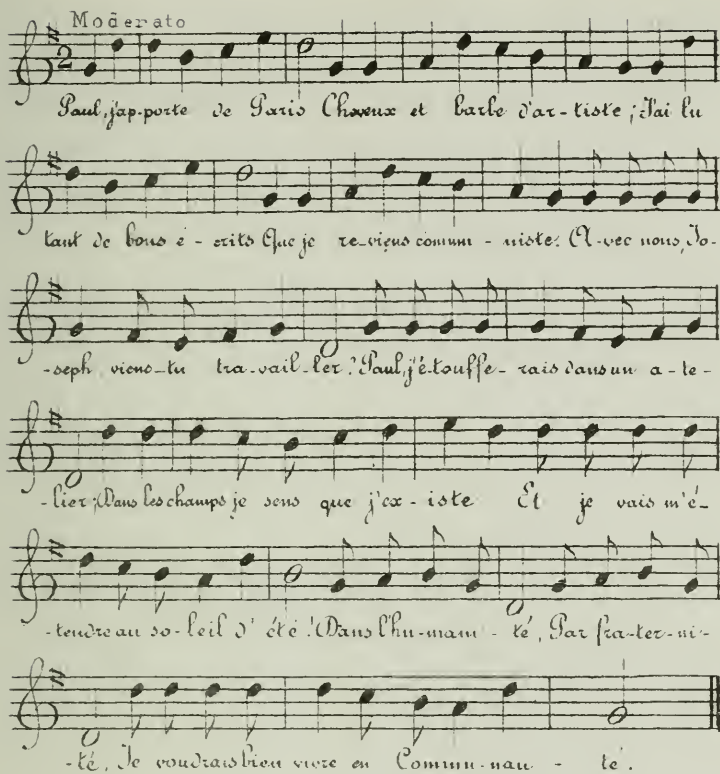 Moderato
2
Paul, j'ap-porte de Paris Cheveux et barbe d'ar-tiste; J'ai lu
tant de bons é-crits Que je re-viens commu-niste. A-vec nous, Jo-
-seph, viens-tu tra-vail-ler? Paul, j'é-touffe-rais dans un a-te-
-lier; Dans les champs je sens que j'ex-iste Et je vais m'é-
-tendre au so-leil d'été! Dans l'hu-mani-té, Par fra-ter-ni-
-té, Je voudrais bien vivre en Commu-nau-té.